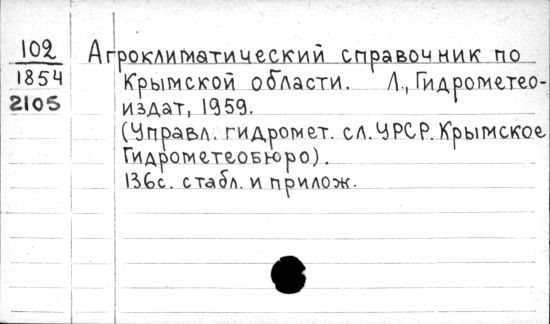 102
1854
2105
Агроклиматический справочник по
Крымской области. Л., Гидрометео-
издат, 1959.
(Управл. гидромет. сл. УРСР. Крымское
Гидрометеобюро).
136с. с табл. и прилож.